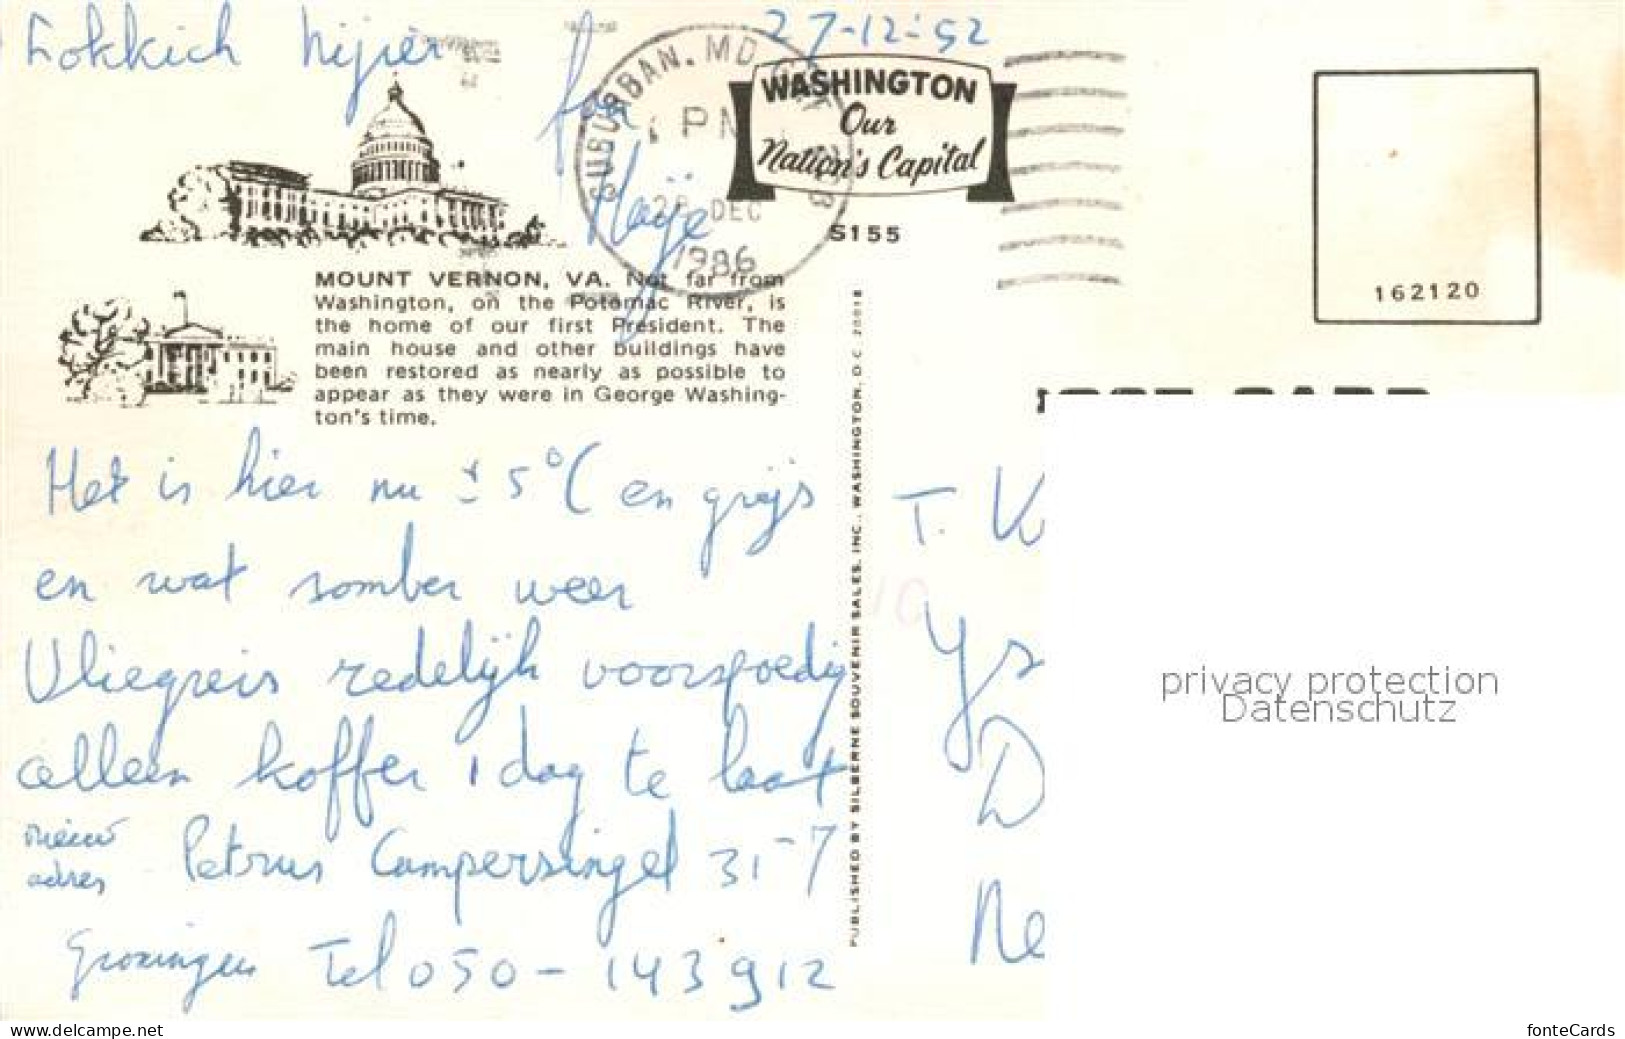 27-12-'52
SUBURBAN. MD
PM
28 DEC
1986
WASHINGTON
Our
Nation's Capital
S155
162120
MOUNT VERNON, VA. Not far from
Washington, on the Potomac River, is
the home of our first President. The
main house and other buildings have
been restored as nearly as possible to
appear as they were in George Washing-
ton's time.
Het is hier nu ± 5°C en grijs
en wat somber weer
Vliegreis redelijk voorspoedig
alleen koffer 1 dag te laat
nieuw
adres
Petrus Campersingel 31-7
Groningen Tel 050-143912
PUBLISHED BY SILBERNE SOUVENIR SALES, INC., WASHINGTON, D.C. 20018
T. K
Ys
D
Ne
privacy protection
Datenschutz
www.delcampe.net
fonteCards